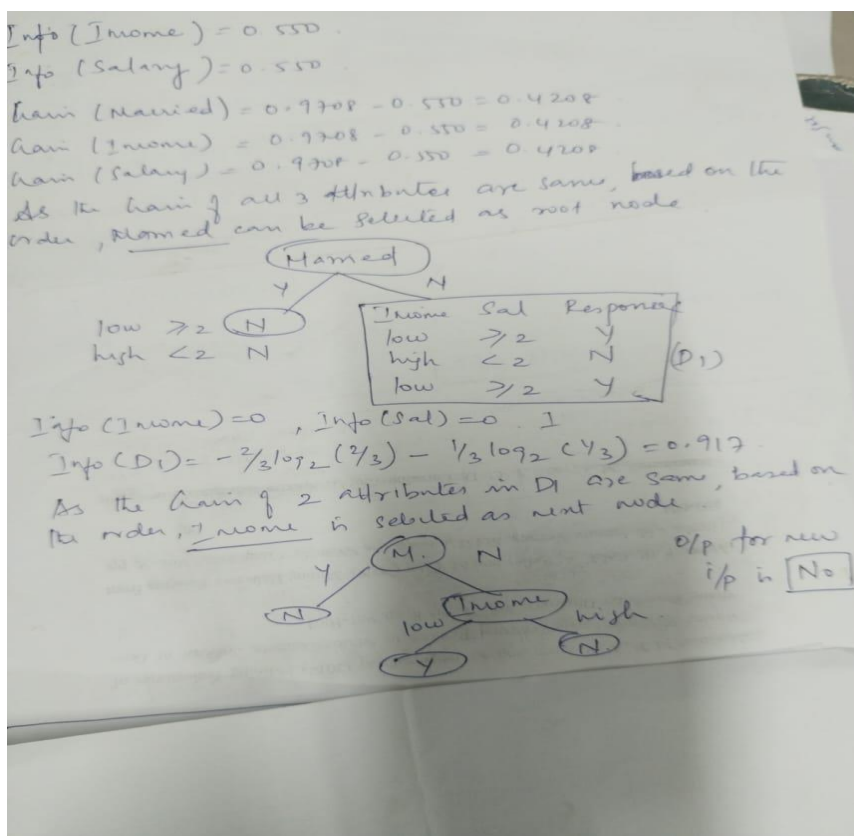 Info (Income) = 0.550.
Info (Salary) = 0.550
Gain (Married) = 0.9708 - 0.550 = 0.4208
Gain (Income) = 0.9708 - 0.550 = 0.4208
Gain (Salary) = 0.9708 - 0.550 = 0.4208
As the Gain of all 3 attributes are same, based on the
order, Married can be selected as root node
Married
Y N
low ≥2 N
high <2 N
Income Sal Response
low ≥2 Y
high <2 N (D1)
low ≥2 Y
Info (Income) = 0, Info (Sal) = 0. I
Info (D1) = -2/3 log2 (2/3) - 1/3 log2 (1/3) = 0.917
As the Gain of 2 attributes in D1 are same, based on
the order, Income is selected as next node
M.
Y N
o/p for new
i/p is No
N Income
low high
Y N